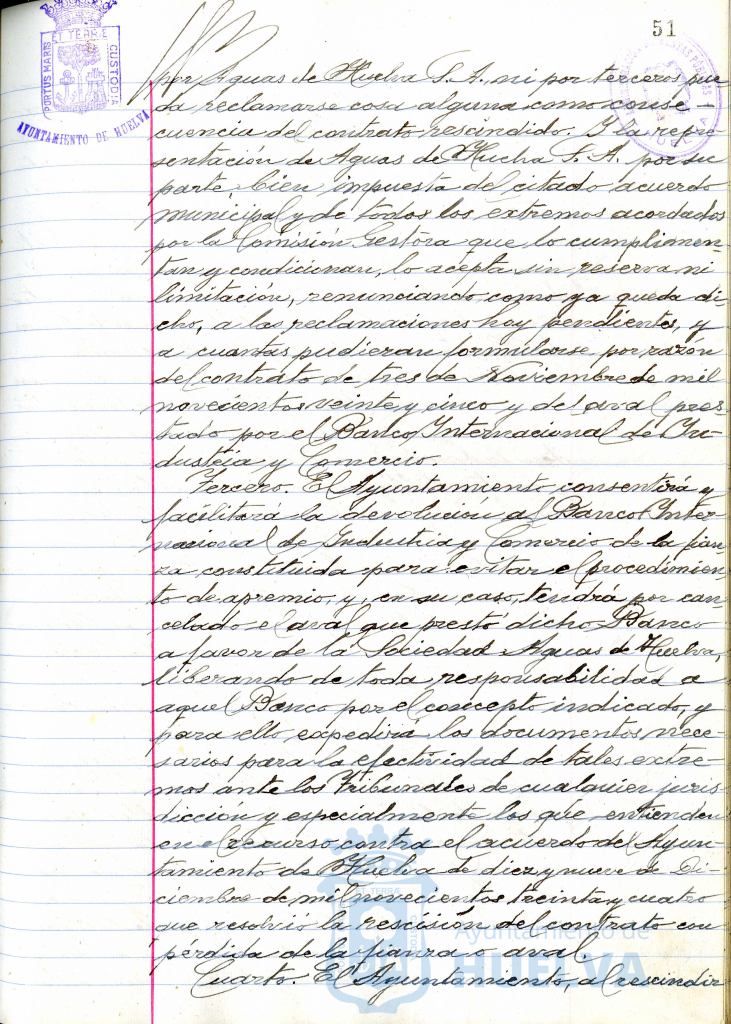 51
ET TERRÆ
PORTUS MARIS
CUSTODIA
AYUNTAMIENTO DE HUELVA
por Aguas de Huelva S.A. ni por terceros pue-
da reclamarse cosa alguna como conse-
cuencia del contrato rescindido. Y la repre-
sentación de Aguas de Huelva S.A. por su
parte, bien impuesta del citado acuerdo
municipal y de todos los extremos acordados
por la Comisión Gestora que lo cumplimen-
tan y condicionan, lo acepta sin reserva ni
limitación, renunciando como ya queda di-
cho, a las reclamaciones hoy pendientes, y
a cuantas pudieran formularse por razón
del contrato de tres de Noviembre de mil
novecientos veinte y cinco y del aval pres-
tado por el Banco Internacional de In-
dustria y Comercio.
Tercero. El Ayuntamiento consentirá y
facilitará la devolución al Banco Inter-
nacional de Industria y Comercio de la fian-
za constituida para evitar el procedimien-
to de apremio, y, en su caso, tendrá por can-
celado el aval que presto dicho Banco
a favor de la Sociedad Aguas de Huelva,
liberando de toda responsabilidad a
aquel Banco por el concepto indicado, y
para ello expedirá los documentos nece-
sarios para la efectividad de tales extre-
mos ante los Tribunales de cualquier juris-
dicción y especialmente los que entienden
en el recurso contra el acuerdo del Ayun-
tamiento de Huelva de diez y nueve de Di-
ciembre de mil novecientos treinta y cuatro
que resolvió la rescisión del contrato con
pérdida de la fianza o aval.
Cuarto. El Ayuntamiento, al rescindir
Ayuntamiento de
HUELVA